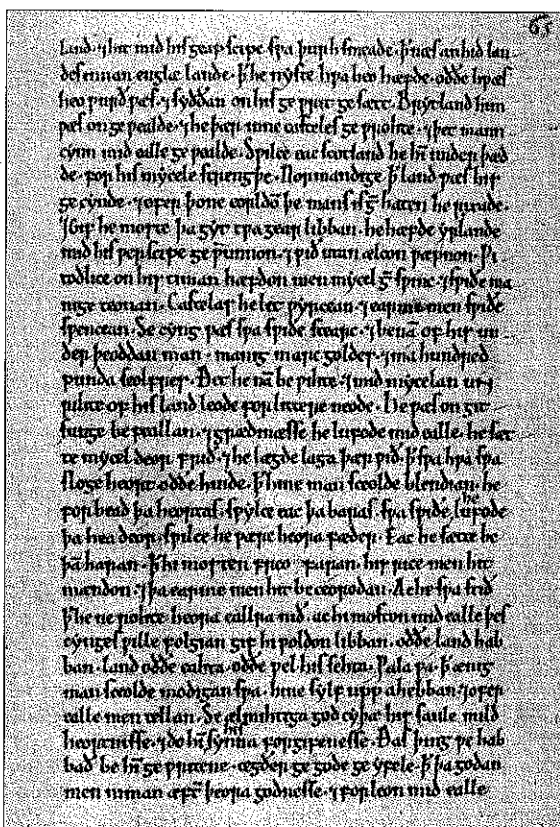 65
land. ⁊ hit mid his geapscipe sƿa þurh smeade. ꝥ næs an hid lan
des innan englæ lande. ꝥ he nyste hƿa heo hæfde. oððe hƿæs
heo ƿurð ƿæs. ⁊ syððan on his ge ƿrit ge sætt. Brytland him
ƿæs on ge ƿealde. ⁊ he þær inne casteles ge ƿrohte. ⁊ þet mann
cynn mid ealle ge ƿealde. Sƿilce eac scotland he hī under þæd
de. for his mycele strengþe. Normandige ꝥ land ƿæs his
ge cynde. ⁊ ofer þone eorldō þe mans is ḡ haten he rixade.
⁊ gif he moste þa gyt tƿa gear libban. he hæfde yrlande
mid his ƿerscipe ge ƿunnon. ⁊ ƿið utan ælcon ƿæpnon. Ƿi
todlice on his timan hæfdon men mycel ḡ sƿinc. ⁊ sƿiðe ma
nige teonan. Castelas he let ƿyrcean. ⁊ earme men sƿiðe
sƿencean. Se cyng ƿæs sƿa sƿiðe stearc. ⁊ benā of his un
der þeoddan man. manig marc goldes. ⁊ ma hundred
punda seolfres. Ðet he nā be ƿihte. ⁊ mid mycelan un
rihte of his land leode for littelre neode. he ƿæs on git
sunge be feallan. ⁊ grædinæsse he lufode mid ealle. he sæt
te mycel deor frið. ⁊ he lægde laga þær ƿið. ꝥ sƿa hƿa sƿa
sloge heort oððe hinde. ꝥ hine man sceolde blendian. he
for bead þa heortas. sƿylce eac þa baras. sƿa sƿiðe he lufode
þa hea deor. sƿilce he ƿære heora fæder. Eac he sætte be
þā haran. ꝥ hi mosten freo faran. his rice men hit
mændon. ⁊ þa earme men hit be ceorodan. Ac he sƿa stið
ꝥ he ne rohte heora eallra nið. ac hi moston mid ealle þes
cynges ƿille folgian gif hi ƿoldon libban. oððe land hab
ban. land oððe eahta. oððe ƿel his sehta. Ƿala ƿa. ꝥ ænig
man sceolde modigan sƿa. hine sylf upp ahebban. ⁊ ofer
ealle men tellan. Se ælmihtiga god cyþæ his saule mild
heortnisse. ⁊ do hī his synna forgifenesse. Ðas þing ƿe hab
bað be hī ge ƿritene. ægðer ge gode ge yfele. ꝥ þa godan
men niman æft̄ þeora godnesse. ⁊ forleon mid ealle